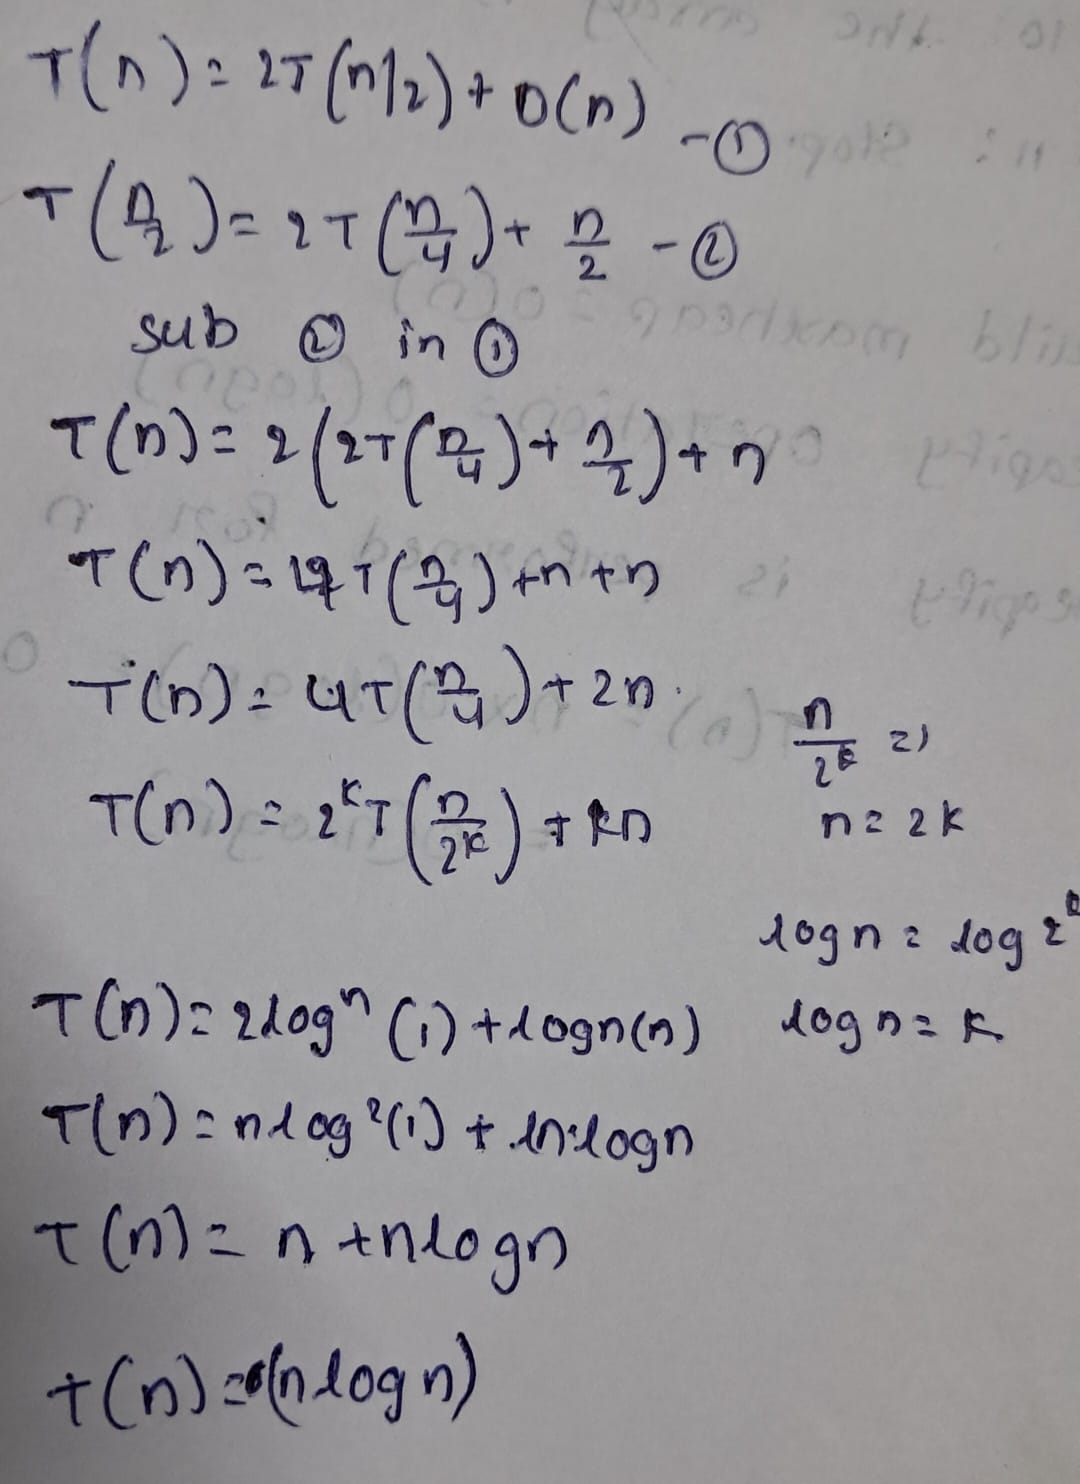 T(n) = 2T(n/2) + O(n) - ①
T(n/2) = 2T(n/4) + n/2 - ②
sub ② in ①
T(n) = 2(2T(n/4) + n/2) + n
T(n) = 4T(n/4) + n + n
T(n) = 4T(n/4) + 2n
n/2^k = 1
T(n) = 2^k T(n/2^k) + kn
n = 2k
log n = log 2^k
T(n) = 2log^n (1) + logn(n)
log n = k
T(n) = nlog^2(1) + n·logn
T(n) = n + nlogn
T(n) = O(nlogn)